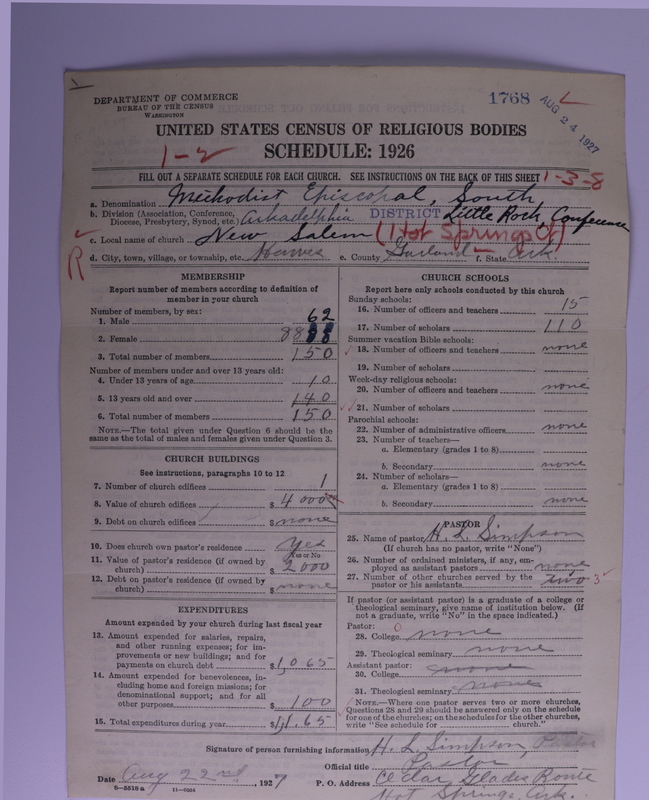 DEPARTMENT OF COMMERCE
BUREAU OF THE CENSUS
WASHINGTON
1768
AUG 24 1927
UNITED STATES CENSUS OF RELIGIOUS BODIES
SCHEDULE: 1926
1-2
FILL OUT A SEPARATE SCHEDULE FOR EACH CHURCH. SEE INSTRUCTIONS ON THE BACK OF THIS SHEET
1-3-8
a. Denomination Methodist Episcopal, South
b. Division (Association, Conference, Diocese, Presbytery, Synod, etc.) Arkadelphia DISTRICT Little Rock Conference
c. Local name of church New Salem (Hot Springs Ct)
R
d. City, town, village, or township, etc. e. County Garland f. State Ark.
MEMBERSHIP
Report number of members according to definition of
member in your church
Number of members, by sex:
1. Male 62
2. Female 88 88
3. Total number of members 150
Number of members under and over 13 years old:
4. Under 13 years of age 10
5. 13 years old and over 140
6. Total number of members 150
NOTE.—The total given under Question 6 should be the
same as the total of males and females given under Question 3.
CHURCH BUILDINGS
See instructions, paragraphs 10 to 12
7. Number of church edifices 1
8. Value of church edifices $ 4000
9. Debt on church edifices $ none
10. Does church own pastor's residence Yes
Yes or No
11. Value of pastor's residence (if owned by
church) $ 2000
12. Debt on pastor's residence (if owned by
church) $ none
EXPENDITURES
Amount expended by your church during last fiscal year
13. Amount expended for salaries, repairs,
and other running expenses; for im-
provements or new buildings; and for
payments on church debt $ 1,065
14. Amount expended for benevolences, in-
cluding home and foreign missions; for
denominational support; and for all
other purposes $ 100
15. Total expenditures during year $ 1,165
CHURCH SCHOOLS
Report here only schools conducted by this church
Sunday schools:
16. Number of officers and teachers 15
17. Number of scholars 110
Summer vacation Bible schools:
18. Number of officers and teachers none
19. Number of scholars
Week-day religious schools:
20. Number of officers and teachers none
21. Number of scholars
Parochial schools:
22. Number of administrative officers none
23. Number of teachers—
a. Elementary (grades 1 to 8)
b. Secondary none
24. Number of scholars—
a. Elementary (grades 1 to 8)
b. Secondary none
PASTOR
25. Name of pastor H. L. Simpson
(If church has no pastor, write "None")
26. Number of ordained ministers, if any, em-
ployed as assistant pastors none
27. Number of other churches served by the
pastor or his assistants two 3
If pastor (or assistant pastor) is a graduate of a college or
theological seminary, give name of institution below. (If
not a graduate, write "No" in the space indicated.)
Pastor: 0
28. College none
29. Theological seminary none
Assistant pastor:
30. College none
31. Theological seminary none
NOTE.—Where one pastor serves two or more churches,
Questions 28 and 29 should be answered only on the schedule
for one of the churches; on the schedules for the other churches,
write "See schedule for ______ church."
Signature of person furnishing information H. L. Simpson, Pastor
Official title Pastor
Date Aug 22nd, 1927 P. O. Address Cedar Glades Route
8—5516 a 11—9004 Hot Springs, Ark.